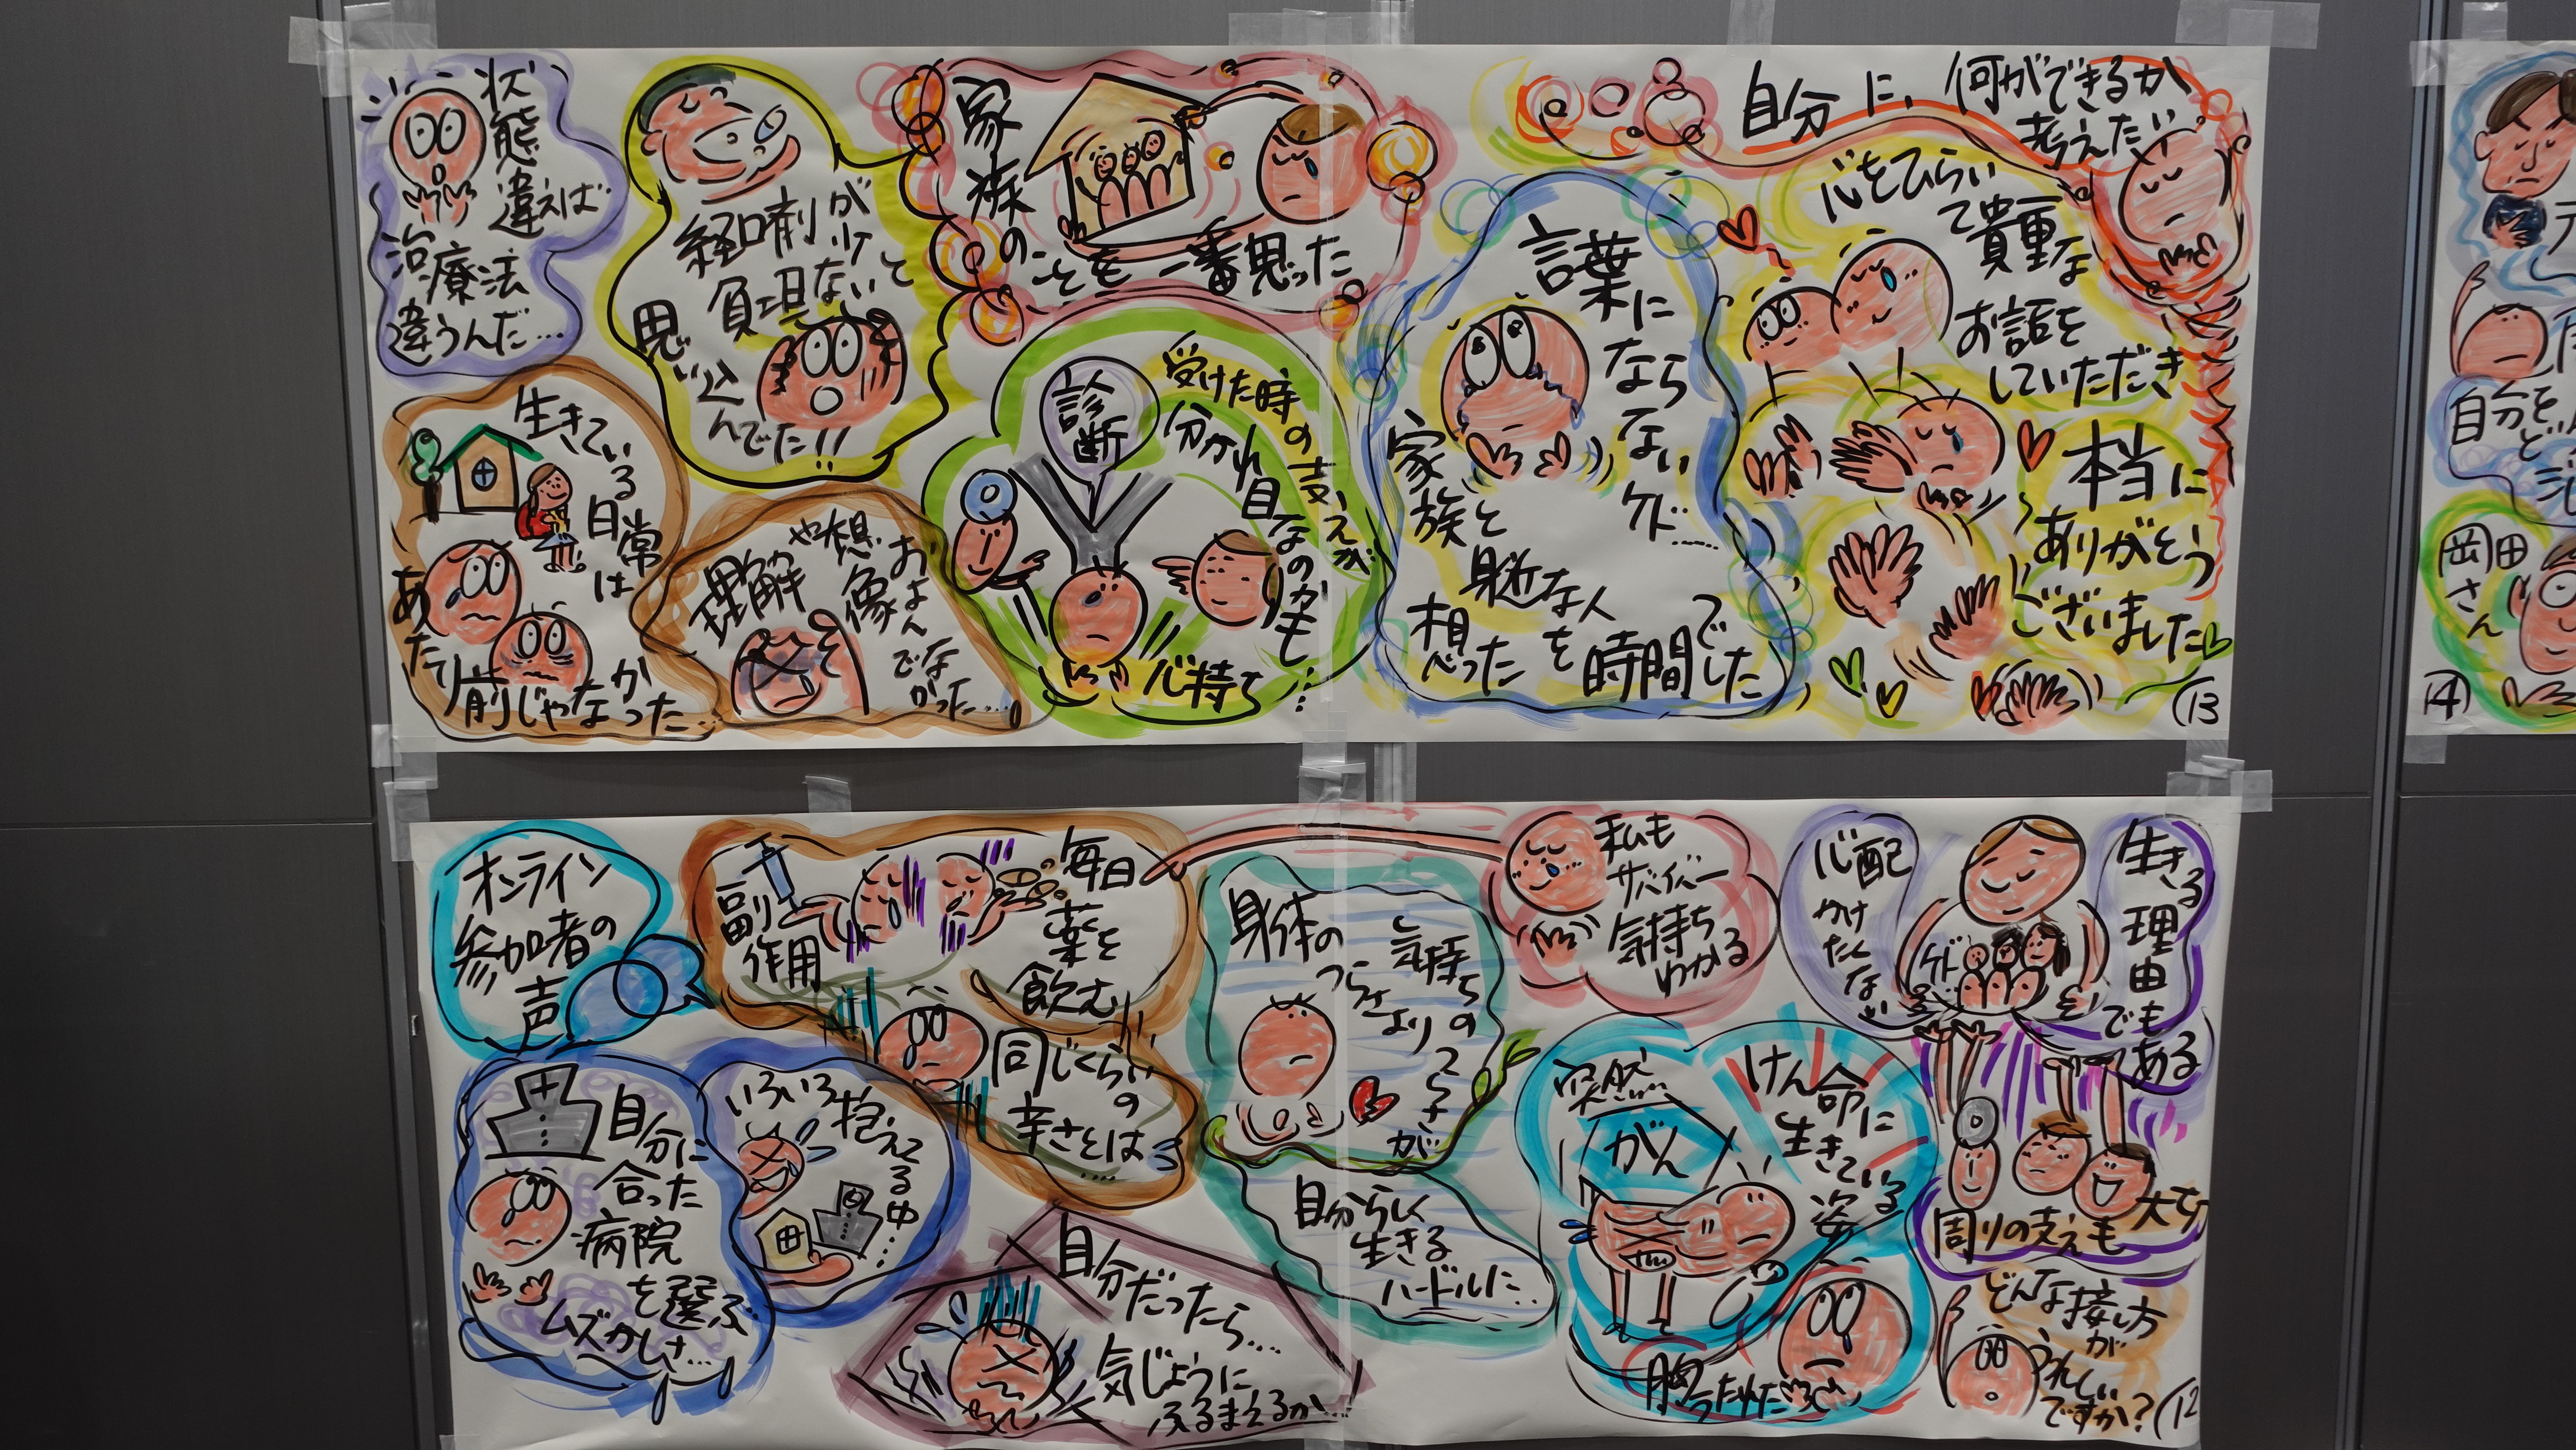 状態違えば
治療法
違うんだ…
経口剤が
負担少ないと
思い込
んでた!!
家族の
ことを一番思った
生きている
日常は
あたり前じゃなかった…
理解や想像
およん
でな
かった…
診断
受けた時の支えが
分かれ目なのかも…
心持ち
言葉に
なら
ない
ケド……
家族と
身近な人を
想った
時間でした
自分に、何ができるか
考えたい
心をひらい
て貴重な
お話を
していただき
本当に
ありがとう
ございました
13
14
自分を
岡田
さん
オンライン
参加者の
声
副
作用
毎日
薬を
飲む
同じくらいの
辛さとは…
自分に
合った
病院
を選ぶ
ムズかしさ…
いろいろ抱えてる中…
自分だったら…
気じょうに
ふるまえるか…
身体の
つらさより
気持ちの
つらさが
自分らしく
生きる
ハードルに…
私も
サバイバー
気持ち
わかる
心配
かけ
たくない
ケド
生きる
理由
でも
ある
突然…
がん
けん命に
生きている
姿
胸うたれた
周りの支えも大切
どんな接し方
が
うれしい
ですか?
12